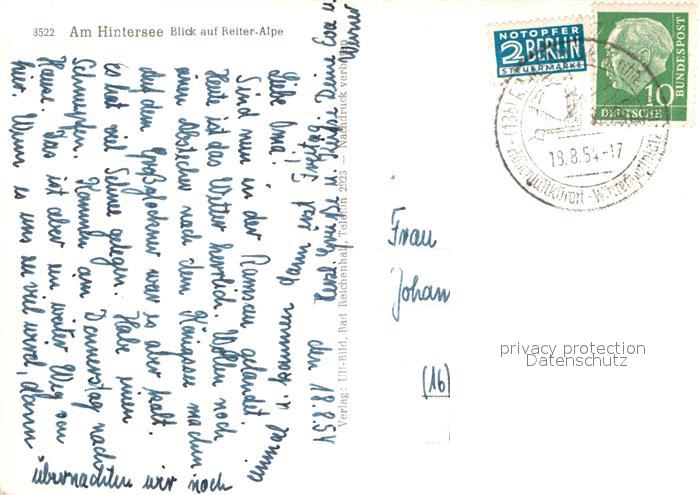 3522 Am Hintersee Blick auf Reiter-Alpe
den 18.8.54
Liebe Oma!
Sind nun in der Ramsau gelandet.
Heute ist das Wetter herrlich. Wollen noch
einen Abstecher nach dem Königssee machen
Auf dem Großglockner war es aber kalt.
Es hat viel Schnee gelegen. Habe einen
Schnupfen. Kommen am Donnerstag nach
Hause. Das ist aber ein weiter Weg von
hier. Wenn es uns zu viel wird, dann
übernachten wir noch
einmal u. kommen dann erst Freitag.
Herzl. Grüße u. Küsse Deine Eva u.
Werner
Verlag: Ull-Bild, Bad Reichenhall, Telefon 2923 — Nachdruck verboten
NOTOPFER
2 BERLIN
STEUERMARKE
10
DEUTSCHE
BUNDESPOST
18.8.54.-17
Frau
Johan
(16)
privacy protection
Datenschutz